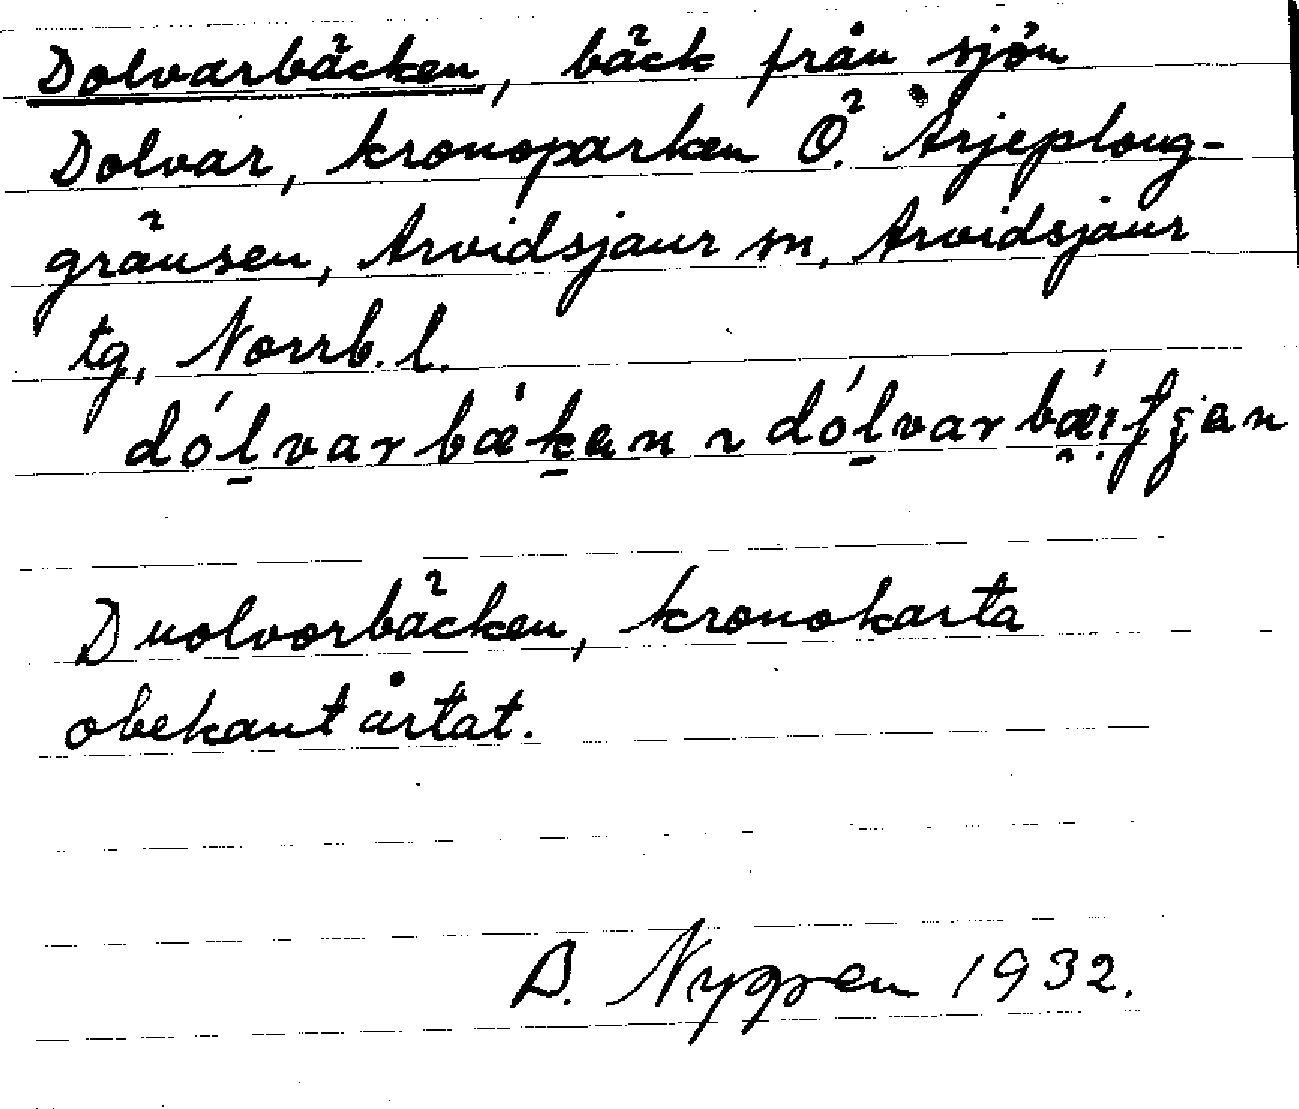 Dolvarbäcken, bäck från sjön
Dolvar, kronoparken Ö. Arjeploug-
gränsen, Arvidsjaur sn, Arvidsjaur
tg, Norrb. l.
dólvarbäcken, kronokarta
obekant årtat.
B. Nygren 1932.